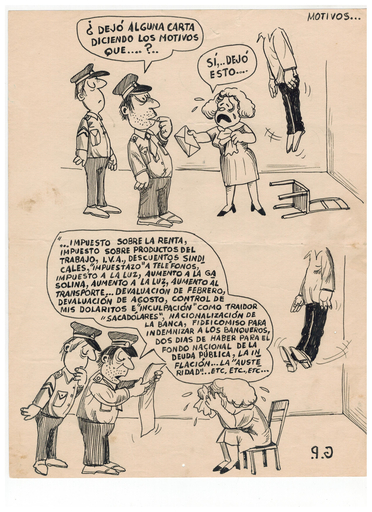 MOTIVOS...
¿ DEJÓ ALGUNA CARTA
DICIENDO LOS MOTIVOS
QUE....?..
SÍ,..DEJÓ
ESTO....
"...IMPUESTO SOBRE LA RENTA,
IMPUESTO SOBRE PRODUCTOS DEL
TRABAJO, I.V.A., DESCUENTOS SINDI
CALES, "IMPUESTAZO" A TELÉFONOS,
IMPUESTO A LA LUZ, AUMENTO A LA GA
SOLINA, AUMENTO A LA LUZ, AUMENTO AL
TRANSPORTE,.. DEVALUACION DE FEBRERO,
DEVALUACION DE AGOSTO, CONTROL DE
MIS DOLARITOS E "INCULPACIÓN" COMO TRAIDOR
"SACADÓLARES", NACIONALIZACIÓN DE
LA BANCA, FIDEICOMISO PARA
INDEMNIZAR A LOS BANQUEROS,
DOS DIAS DE HABER PARA EL
FONDO NACIONAL DE LA
DEUDA PÚBLICA, LA IN
FLACIÓN...LA "AUSTE
RIDAD"...ETC, ETC, ETC...
G.P.